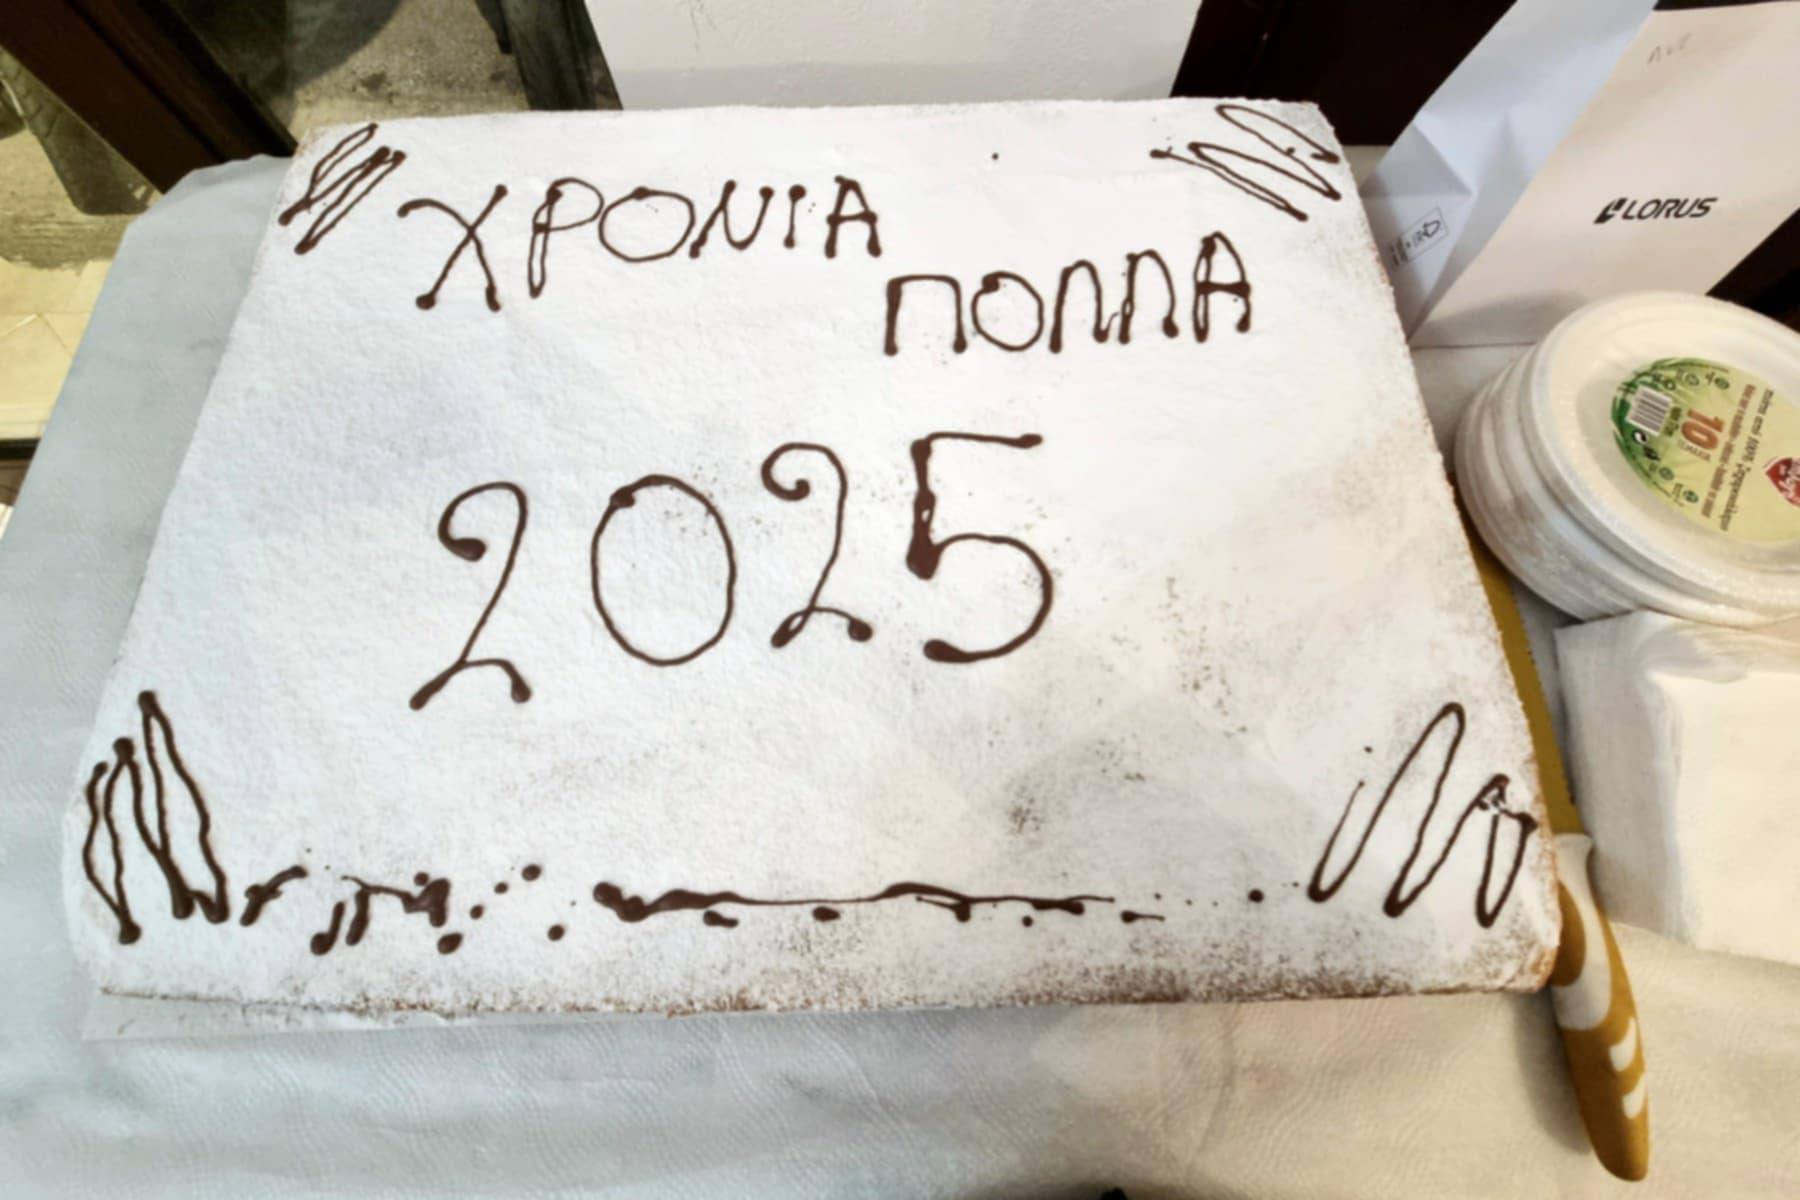 ΧΡΟΝΙΑ
ΠΟΛΛΑ
2025
LORUS
10